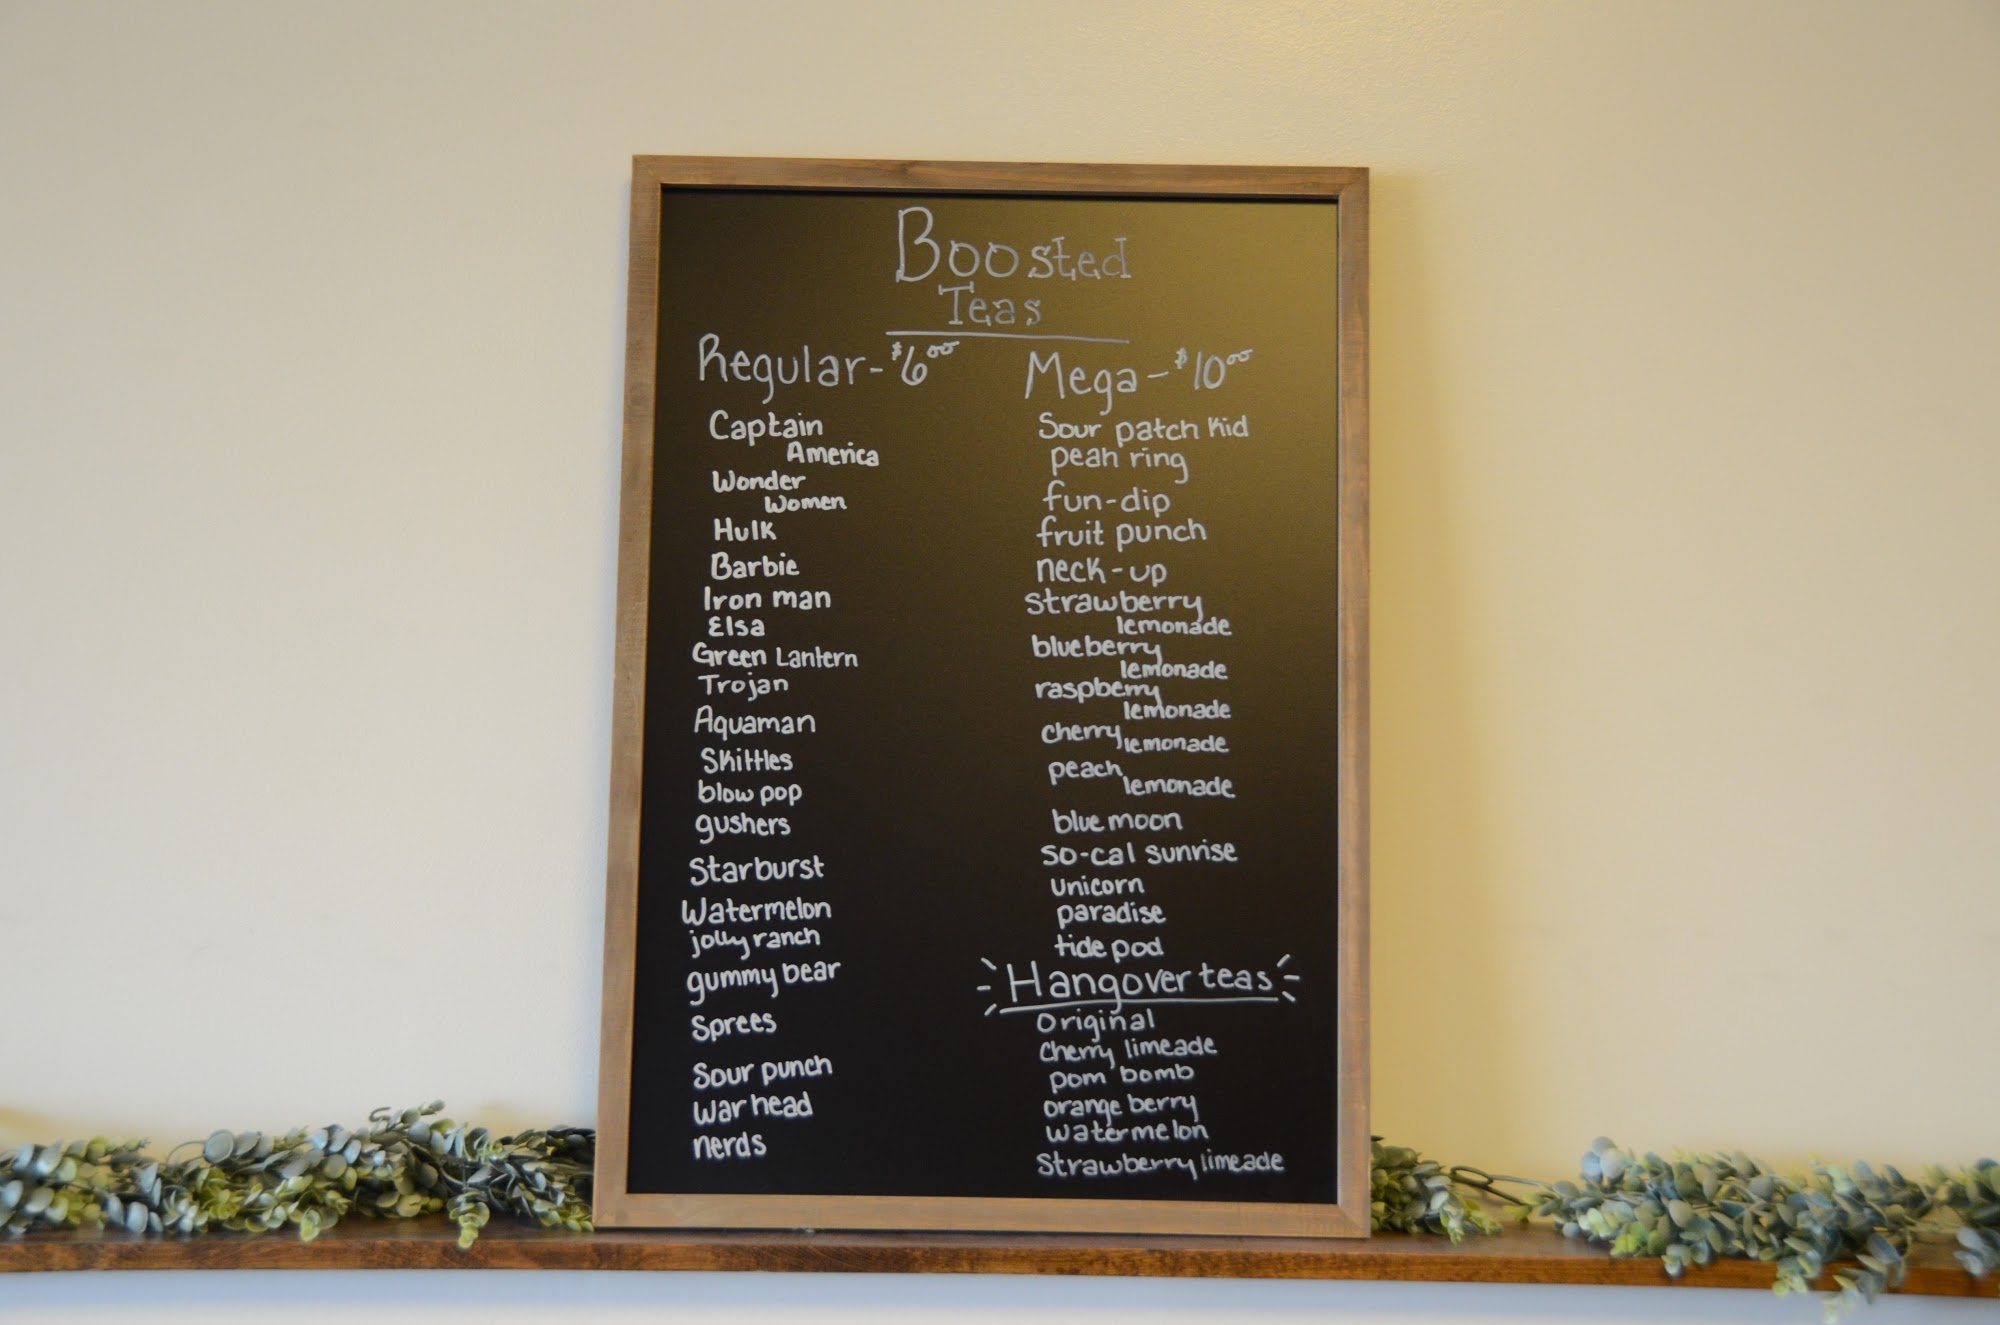 Boosted
Teas
Regular - $6.00
Captain
America
Wonder
Women
Hulk
Barbie
Iron man
Elsa
Green Lantern
Trojan
Aquaman
Skittles
blow pop
gushers
Starburst
Watermelon
jolly ranch
gummy bear
Sprees
Sour punch
War head
nerds
Mega - $10.00
Sour patch Kid
peah ring
fun-dip
fruit punch
neck-up
strawberry
lemonade
blueberry
lemonade
raspberry
lemonade
cherry
lemonade
peach
lemonade
blue moon
so-cal sunrise
unicorn
paradise
tide pod
Hangover teas
Original
Cherry limeade
pom bomb
orange berry
watermelon
Strawberry limeade